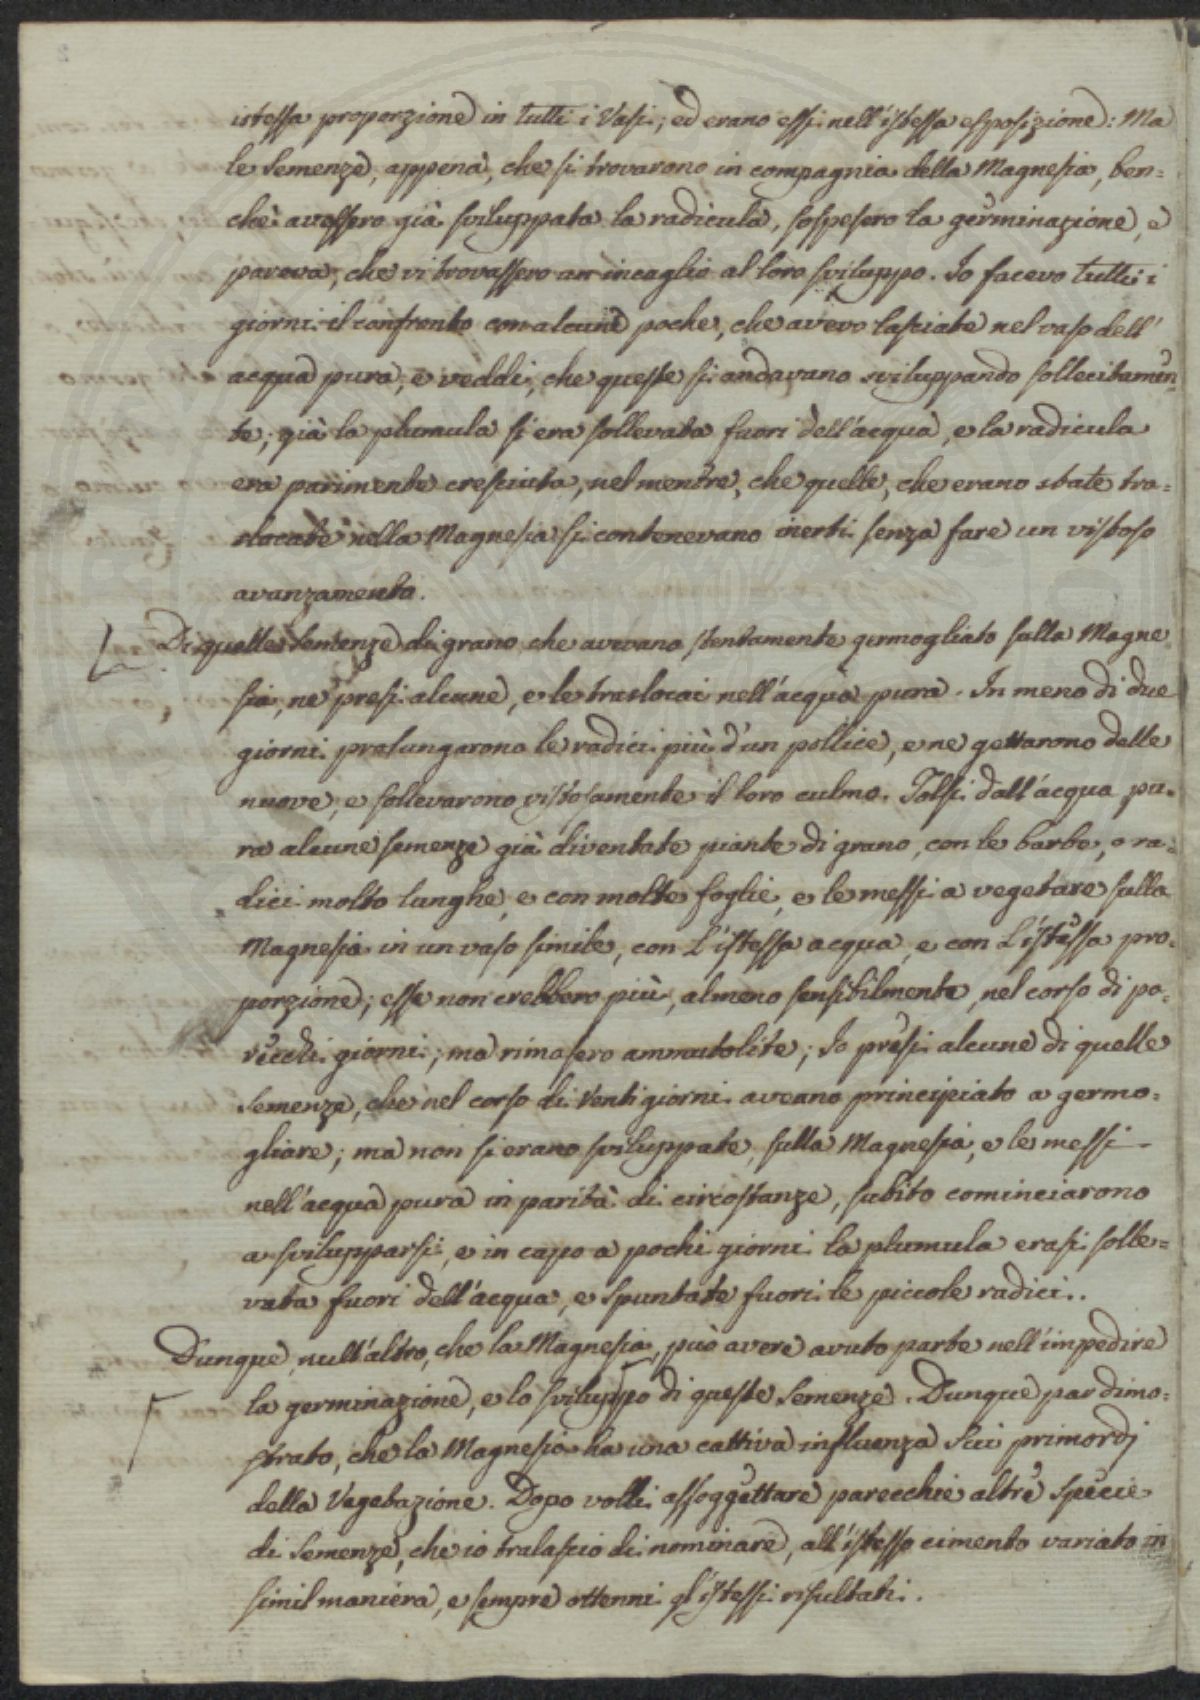 istessa proporzione in tutti i Vasi; ed erano essi nell'istessa esposizione: Ma
le Semenze, appena, che si trovarono in compagnia della Magnesia, ben=
chè avessero già sviluppata la radicula, sospesero la germinazione, e
pareva, che vi trovassero un incaglio al loro sviluppo. Io facevo tutti i
giorni il confronto con alcune poche, che avevo lasciate nel vaso dell'
acqua pura, e veddi, che queste si andavano sviluppando sollecitamen=
te; già la plumula si era sollevata fuori dell'acqua, e la radicula
era parimente cresciuta, nel mentre, che quelle, che erano state tra=
slocate nella Magnesia si contenevano inerti senza fare un vistoso
avanzamento.
Di quelle Semenze di grano che avevano stentamente germogliato sulla Magne
sia, ne presi alcune, e le traslocai nell'acqua pura. In meno di due
giorni prolungarono le radici più d'un pollice, e ne gettarono delle
nuove, e sollevarono vistosamente il loro culmo. Tolsi dall'acqua pu=
ra alcune semenze già diventate piante di grano, con le barbe, o ra=
dici molto lunghe, e con molte foglie, e le messi a vegetare sulla
Magnesia in un vaso simile, con l'istessa acqua, e con l'istessa pro=
porzione; esse non crebbero più, almeno sensibilmente, nel corso di pa=
recchi giorni; ma rimasero ammutolite; Io presi alcune di quelle
Semenze, che nel corso di Venti giorni aveano principiato a germo=
gliare; ma non si erano sviluppate, sulla Magnesia, e le messi
nell'acqua pura in parità di circostanze, subito cominciarono
a svilupparsi, e in capo a pochi giorni la plumula erasi solle=
vata fuori dell'acqua, e spuntate fuori le piccole radici..
Dunque, null'altro, che la Magnesia, può avere avuto parte nell'impedire
la germinazione, e lo sviluppo di queste Semenze. Dunque par dimo=
strato, che la Magnesia ha una cattiva influenza sui primordj
della Vegetazione. Dopo volli assoggettare parecchie altre specie
di Semenze, che io tralascio di nominare, all'istesso cimento variato in
simil maniera, e sempre ottenni gl'istessi risultati.